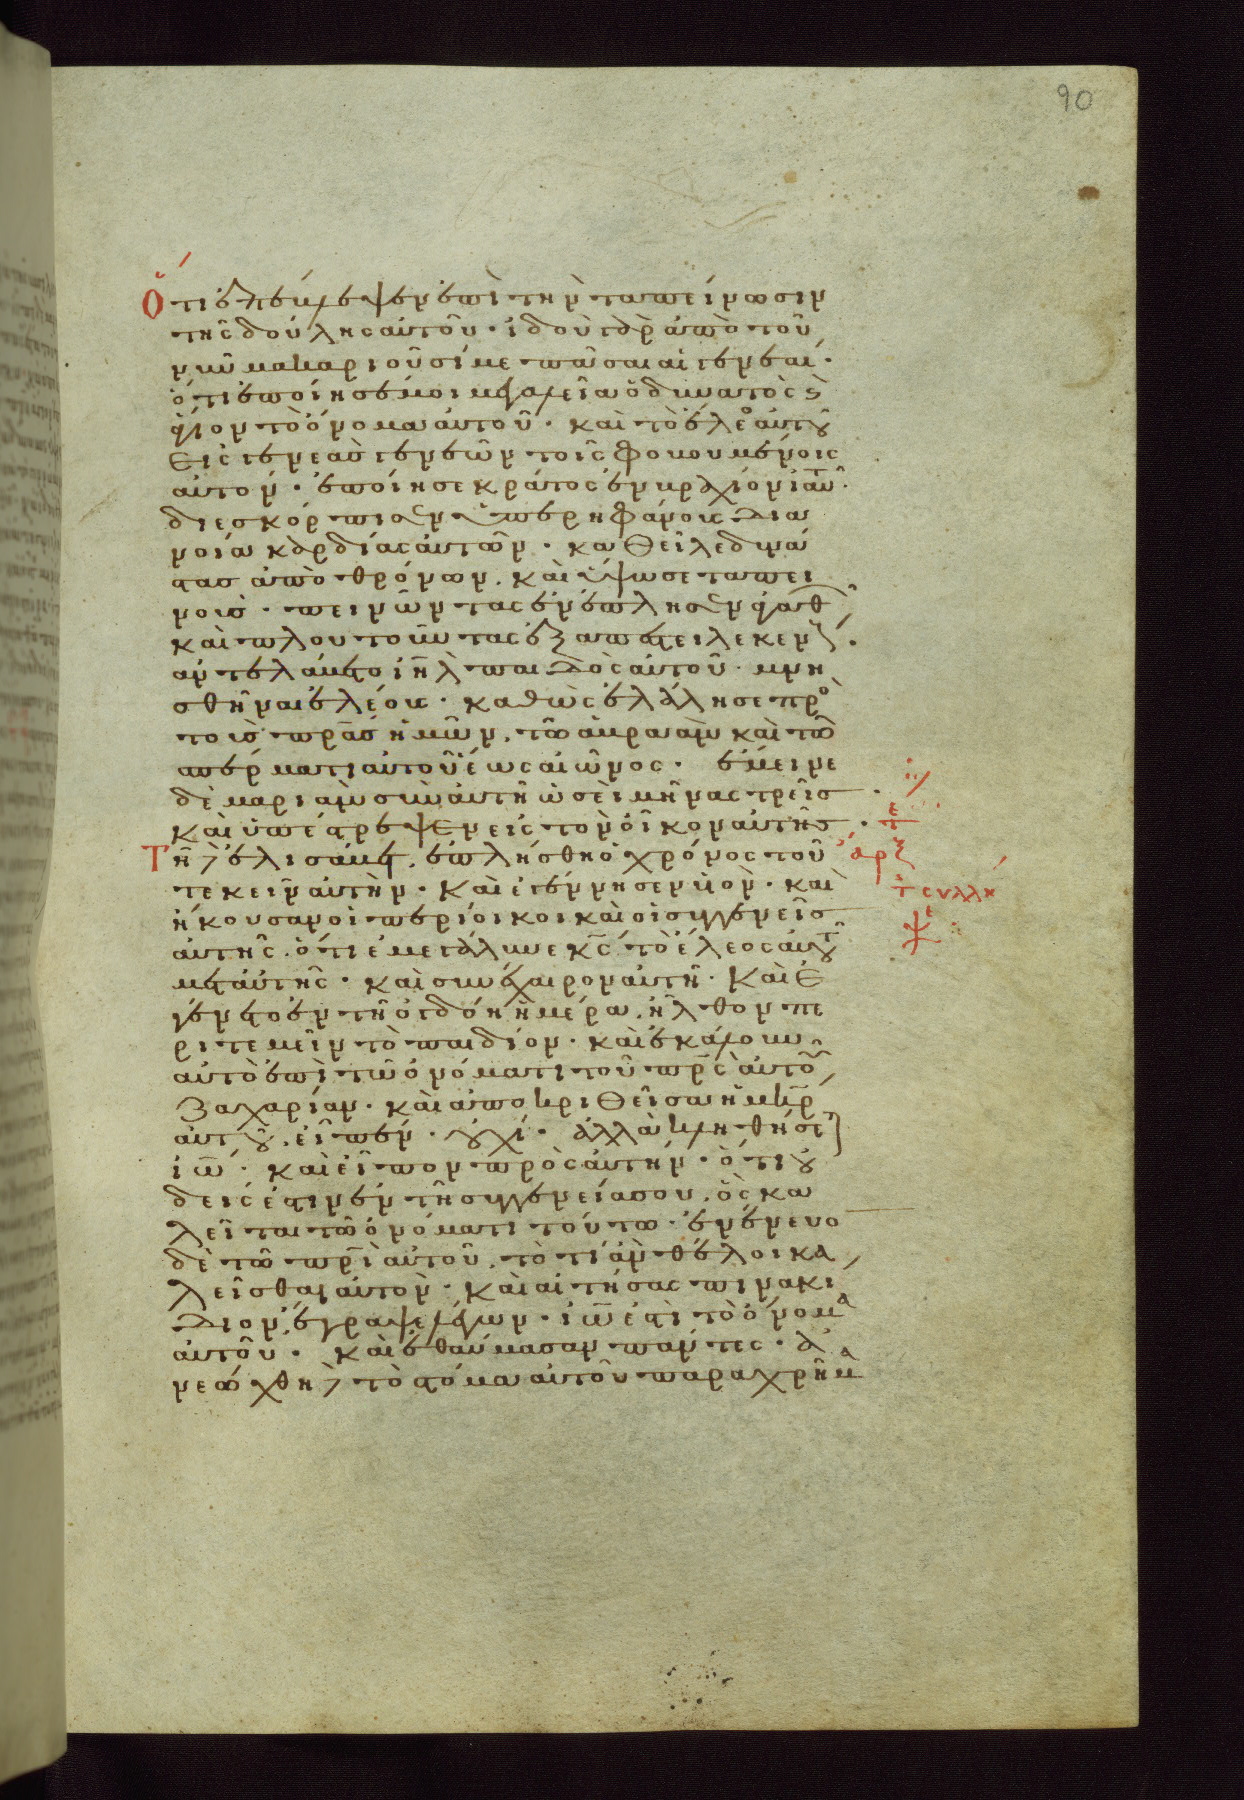 90
Ὅτι ἐπέβλεψεν ἐπὶ τὴν ταπείνωσιν
τῆς δούλης αὐτοῦ· ἰδοὺ γὰρ ἀπὸ τοῦ
νῦν μακαριοῦσί με πᾶσαι αἱ γενεαί·
ὅτι ἐποίησέ μοι μεγαλεῖα ὁ δυνατὸς ϗ
ἅγιον τὸ ὄνομα αὐτοῦ· καὶ τὸ ἔλεος αὐτοῦ
εἰς γενεὰς γενεῶν τοῖς φοβουμένοις
αὐτόν· ἐποίησε κράτος ἐν βραχίονι αὐτοῦ·
διεσκόρπισεν ὑπερηφάνους δια
νοίᾳ καρδίας αὐτῶν· καθεῖλε δυνά
στας ἀπὸ θρόνων, καὶ ὕψωσε ταπει
νούς· πεινῶντας ἐνέπλησεν ἀγαθῶν,
καὶ πλουτοῦντας ἐξαπέστειλε κενούς·
ἀντελάβετο ἰηλ παιδὸς αὐτοῦ· μνη
σθῆναι ἐλέους· καθὼς ἐλάλησε πρὸς
τοὺς πρας ἡμῶν, τῶ ἀβραὰμ καὶ τῶ
σπέρματι αὐτοῦ ἕως αἰῶνος· ἔμεινε
δὲ μαριὰμ σὺν αὐτῆ ὡσεὶ μῆνας τρεῖς·
καὶ ὑπέστρεψεν εἰς τὸν οἶκον αὐτῆς· τε
Τῆ δὲ ἐλισάβετ, ἐπλήσθη ὁ χρόνος τοῦ ἀρχ
τεκεῖν αὐτήν· καὶ ἐγέννησεν υἱόν· καὶ συλλη
ἤκουσαν οἱ περίοικοι καὶ οἱ συγγενεῖς
αὐτῆς, ὅτι ἐμεγάλυνε κς τὸ ἔλεος αὐτοῦ
μετ αὐτῆς· καὶ συνέχαιρον αὐτῆ· Καὶ ἐ
γένετο ἐν τῆ ὀγδόη ἡμέρα, ἦλθον πε
ριτεμεῖν τὸ παιδίον· καὶ ἐκάλουν
αὐτὸ ἐπὶ τῶ ὀνόματι τοῦ πρς αὐτοῦ,
Ζαχαρίαν· καὶ ἀποκριθεῖσα ἡ μηρ
αὐτοῦ, εἶπεν· οὐχί· ἀλλὰ κληθήσεται
ἰω· καὶ εἶπον πρὸς αὐτήν· ὅτι οὐ
δείς ἐστιν ἐν τῆ συγγενείᾳ σου, ὃς κα
λεῖται τῶ ὀνόματι τούτω· ἐνένευον
δὲ τῶ πρι αὐτοῦ, τὸ τί ἂν θέλοι κα
λεῖσθαι αὐτόν· καὶ αἰτήσας πινακί
διον, ἔγραψε λέγων· ἰω ἐστὶ τὸ ὄνομα
αὐτοῦ· καὶ ἐθαύμασαν πάντες· ἀ
νεώχθη δὲ τὸ στόμα αὐτοῦ παραχρῆμα